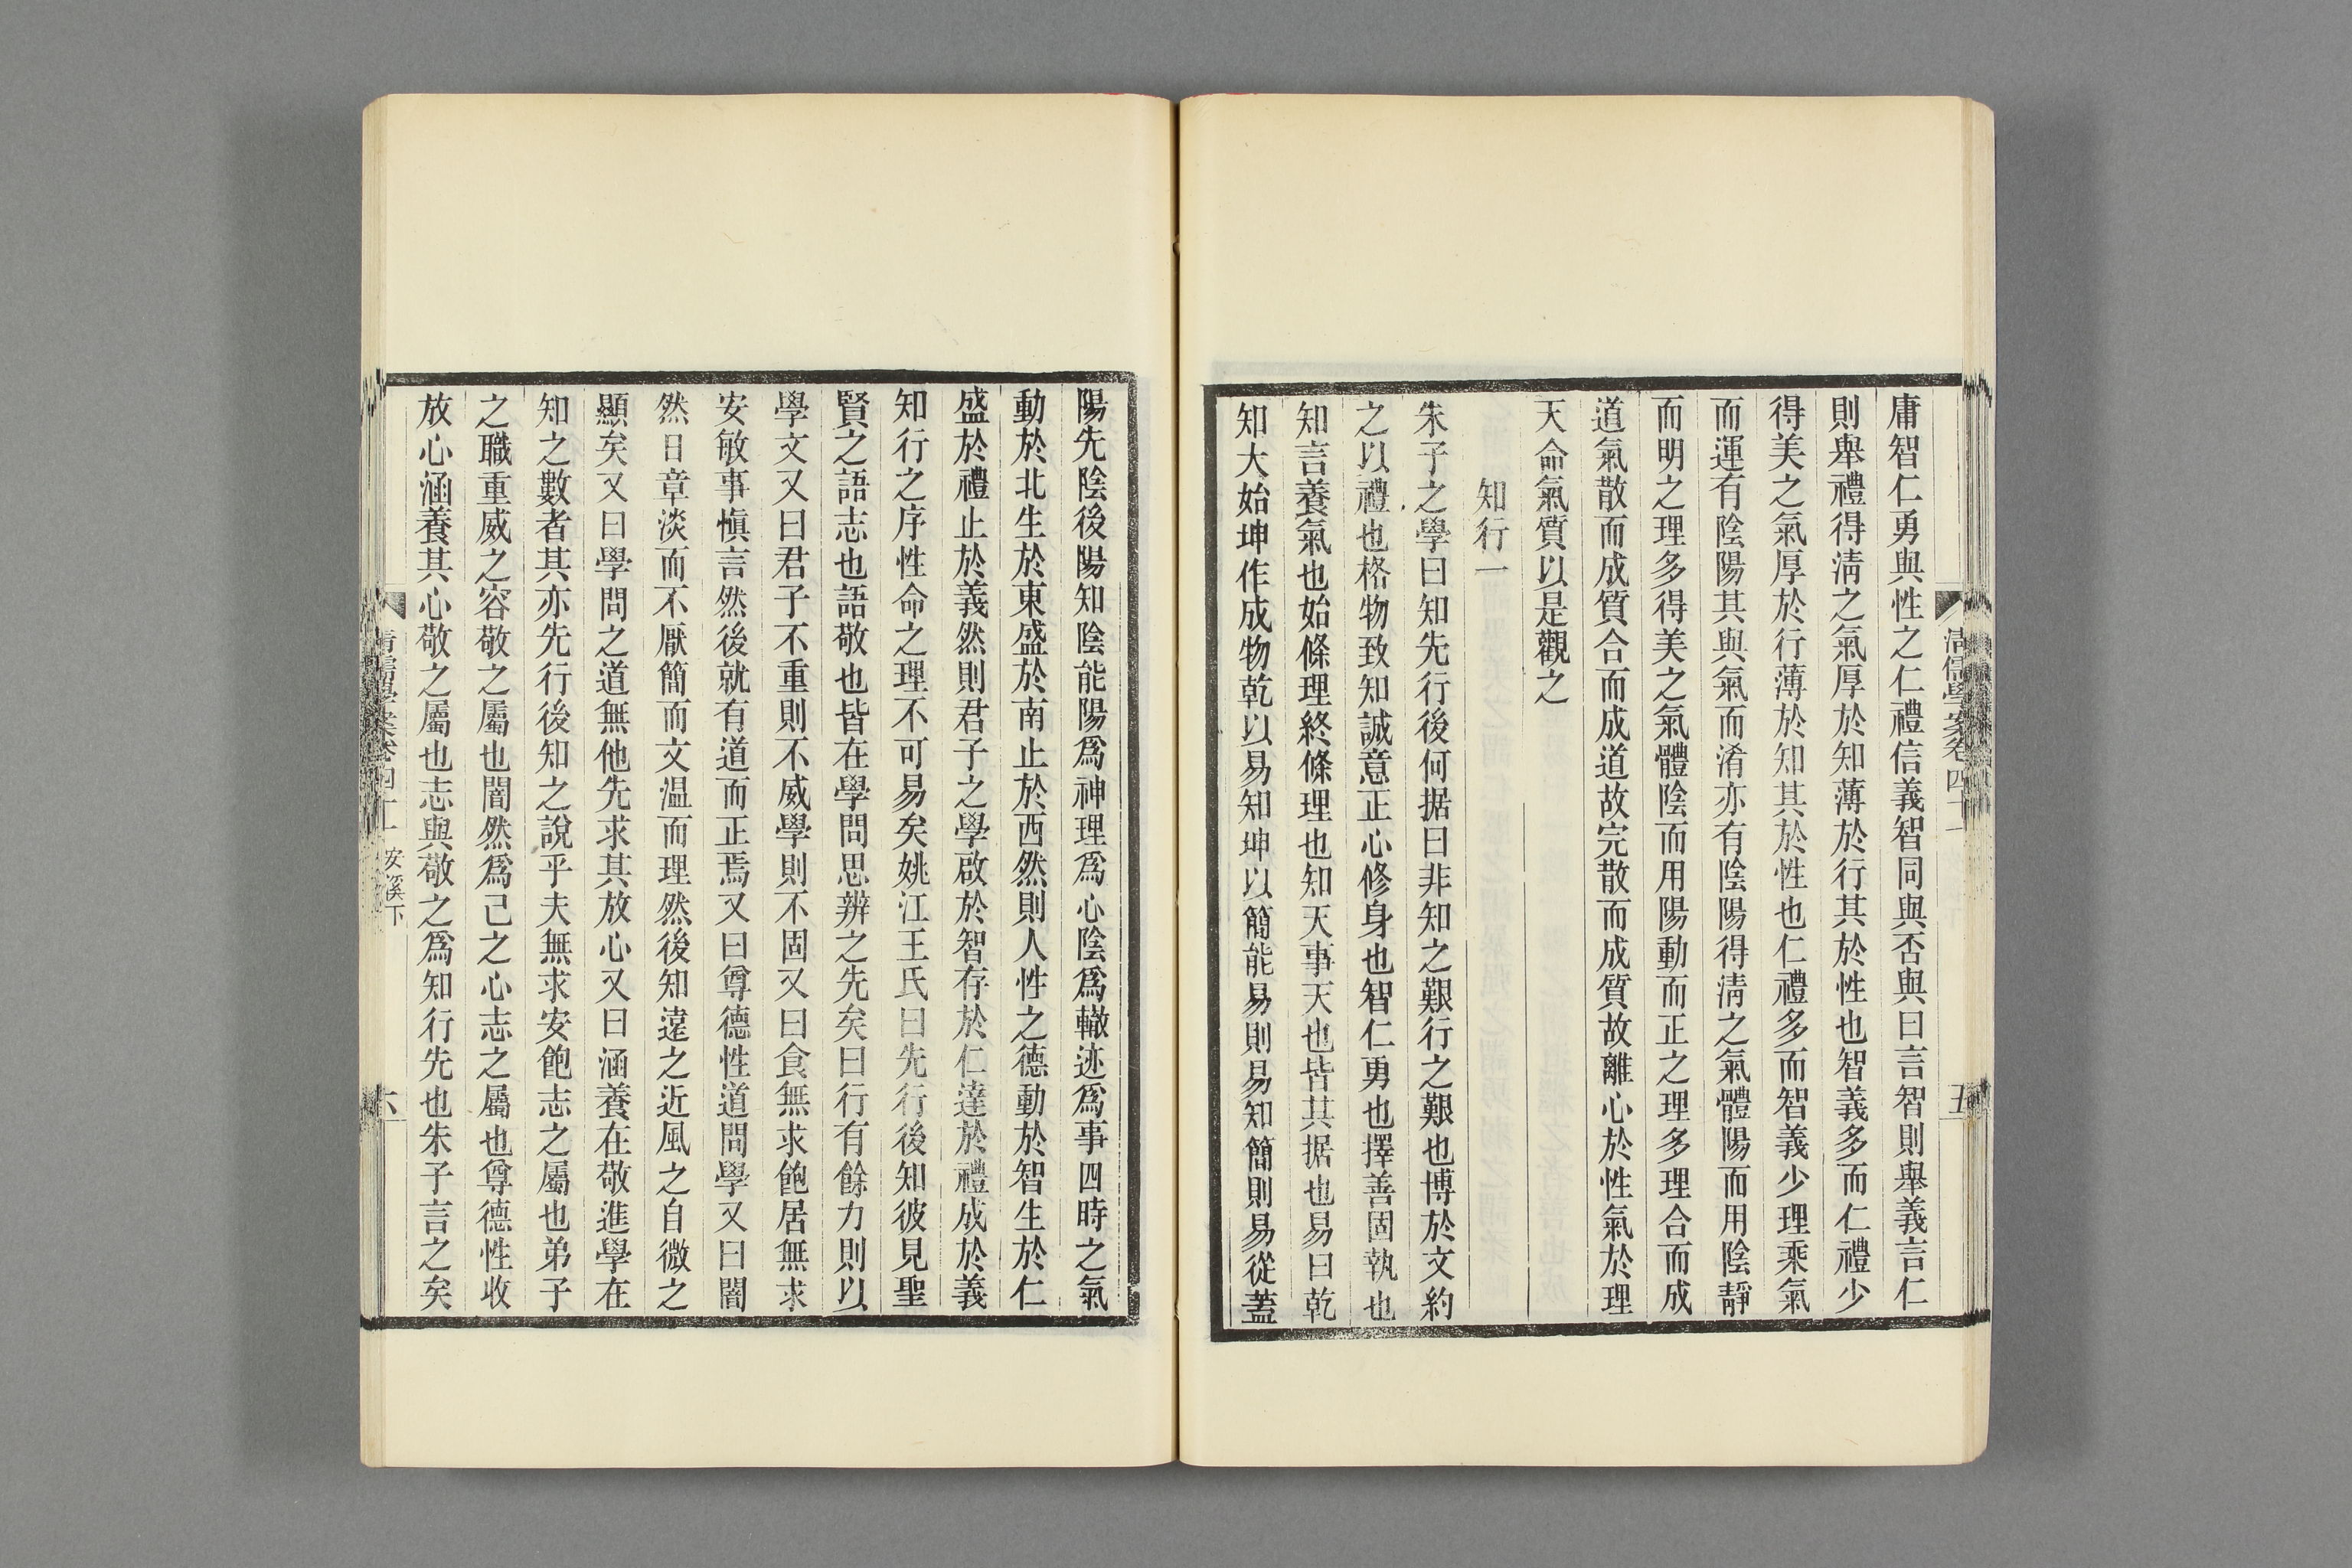 清儒學案卷四十一
五
庸智仁勇與性之仁禮信義智同與否與曰言智則舉義言仁
則舉禮得淸之氣厚於知薄於行其於性也智義多而仁禮少
得美之氣厚於行薄於知其於性也仁禮多而智義少理乘氣
而運有陰陽其與氣而淆亦有陰陽得淸之氣體陽而用陰靜
而明之理多得美之氣體陰而用陽動而正之理多理合而成
道氣散而成質合而成道故完散而成質故離心於性氣於理
天命氣質以是觀之
知行一
朱子之學曰知先行後何据曰非知之艱行之艱也博於文約
之以禮也格物致知誠意正心修身也智仁勇也擇善固執也
知言養氣也始條理終條理也知天事天也皆其据也易曰乾
知大始坤作成物乾以易知坤以簡能易則易知簡則易從蓋
陽先陰後陽知陰能陽爲神理爲心陰爲轍迹爲事四時之氣
動於北生於東盛於南止於西然則人性之德動於智生於仁
盛於禮止於義然則君子之學啟於智存於仁達於禮成於義
知行之序性命之理不可易矣姚江王氏曰先行後知彼見聖
賢之語志也語敬也皆在學問思辨之先矣曰行有餘力則以
學文又曰君子不重則不威學則不固又曰食無求飽居無求
安敏事愼言然後就有道而正焉又曰尊德性道問學又曰闇
然日章淡而不厭簡而文温而理然後知遠之近風之自微之
顯矣又曰學問之道無他先求其放心又曰涵養在敬進學在
知之數者其亦先行後知之說乎夫無求安飽志之屬也弟子
之職重威之容敬之屬也闇然爲己之心志之屬也尊德性收
放心涵養其心敬之屬也志與敬之爲知行先也朱子言之矣
清儒學案卷四十一 安溪下
六